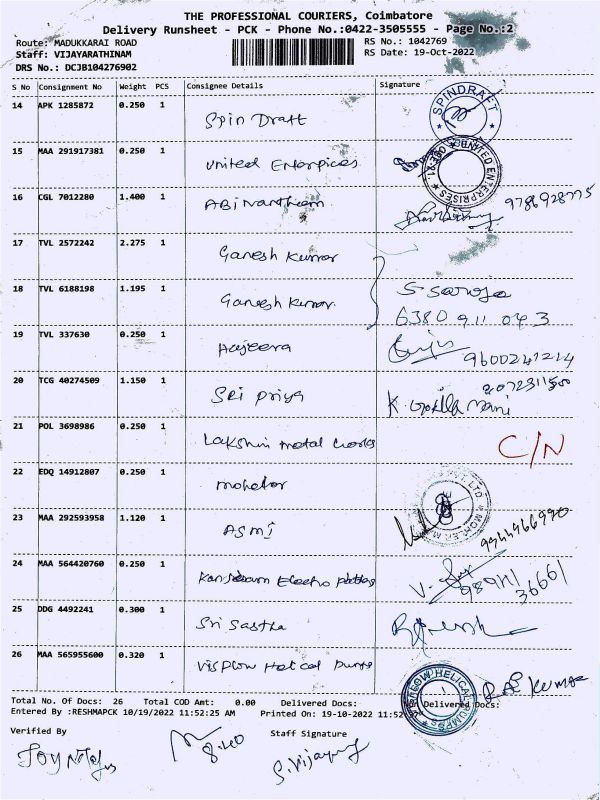 THE PROFESSIONAL COURIERS, Coimbatore
Delivery Runsheet - PCK - Phone No.:0422-3505555 - Page No.:2
Route: MADUKKARAI ROAD RS No.: 1042769
Staff: VIJAYARATHINAM RS Date: 19-Oct-2022
DRS No.: DCJB104276902
S No Consignment No Weight PCS Consignee Details Signature
14 APK 1285872 0.250 1 Spin Draft SPINDRAFT
15 MAA 291917381 0.250 1 United Enterprices UNITED ENTERPRISES
16 CGL 7012280 1.400 1 9786928775
17 TVL 2572242 2.275 1 Ganesh Kumar
18 TVL 6188198 1.195 1 Ganesh Kumar S Saroja
6380 911 043
19 TVL 337630 0.250 1 Hajeera 9600241214
20 TCG 40274509 1.150 1 Sri Priya K.
21 POL 3698986 0.250 1 Lakshmi metal works C/N
22 EDQ 14912807 0.250 1
23 MAA 292593958 1.120 1 ASMI 9944966990
24 MAA 564420760 0.250 1 Electro
25 DDG 4492241 0.300 1 Sri Sastha
26 MAA 565955600 0.320 1 HELICAL PUMPS Raj Kumar
Total No. Of Docs: 26 Total COD Amt: 0.00 Delivered Docs: Non Delivered Docs:
Entered By :RESHMAPCK 10/19/2022 11:52:25 AM Printed On: 19-10-2022 11:52
Verified By Staff Signature
S. Vijay